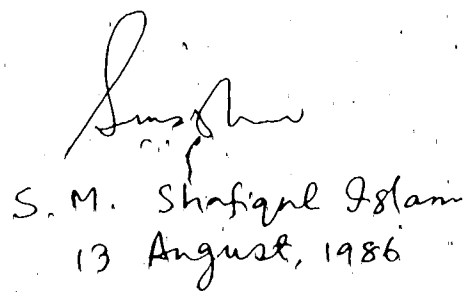 S. M. Shafiqul Islam
13 August, 1986